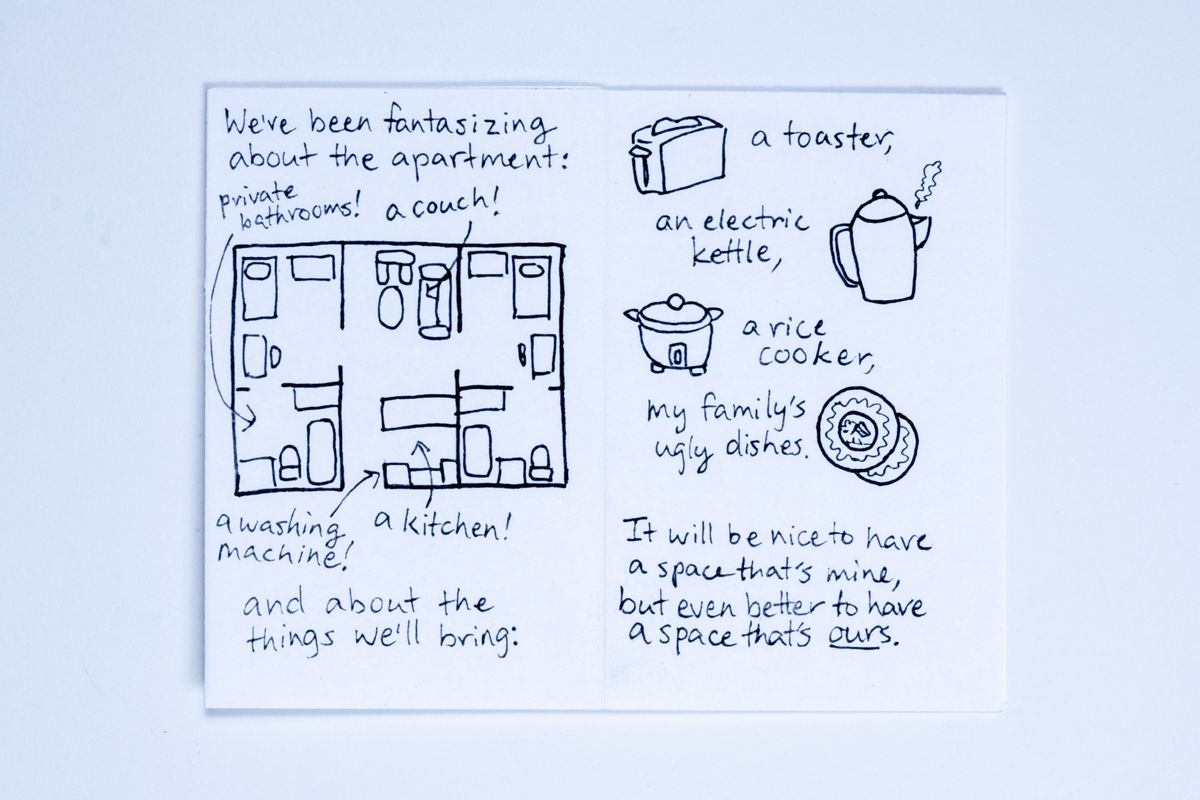 We've been fantasizing
about the apartment:
private
bathrooms!
a couch!
a washing
machine!
a kitchen!
and about the
things we'll bring:
a toaster,
an electric
kettle,
a rice
cooker,
my family's
ugly dishes.
It will be nice to have
a space that's mine,
but even better to have
a space that's ours.